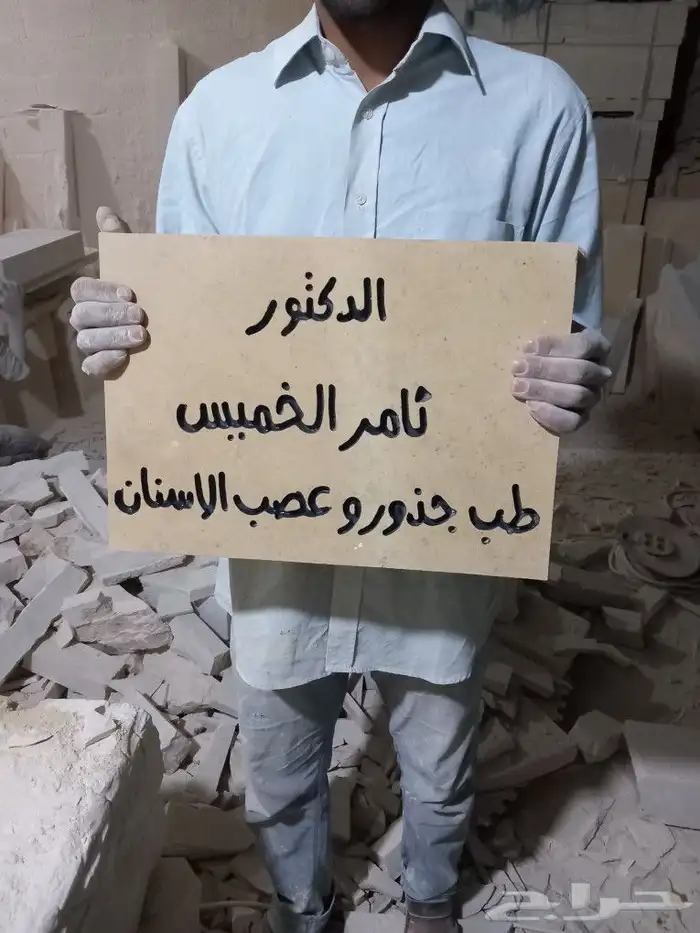 الدكتور
ثامر الخميس
طب جذور و عصب الاسنان
حراج